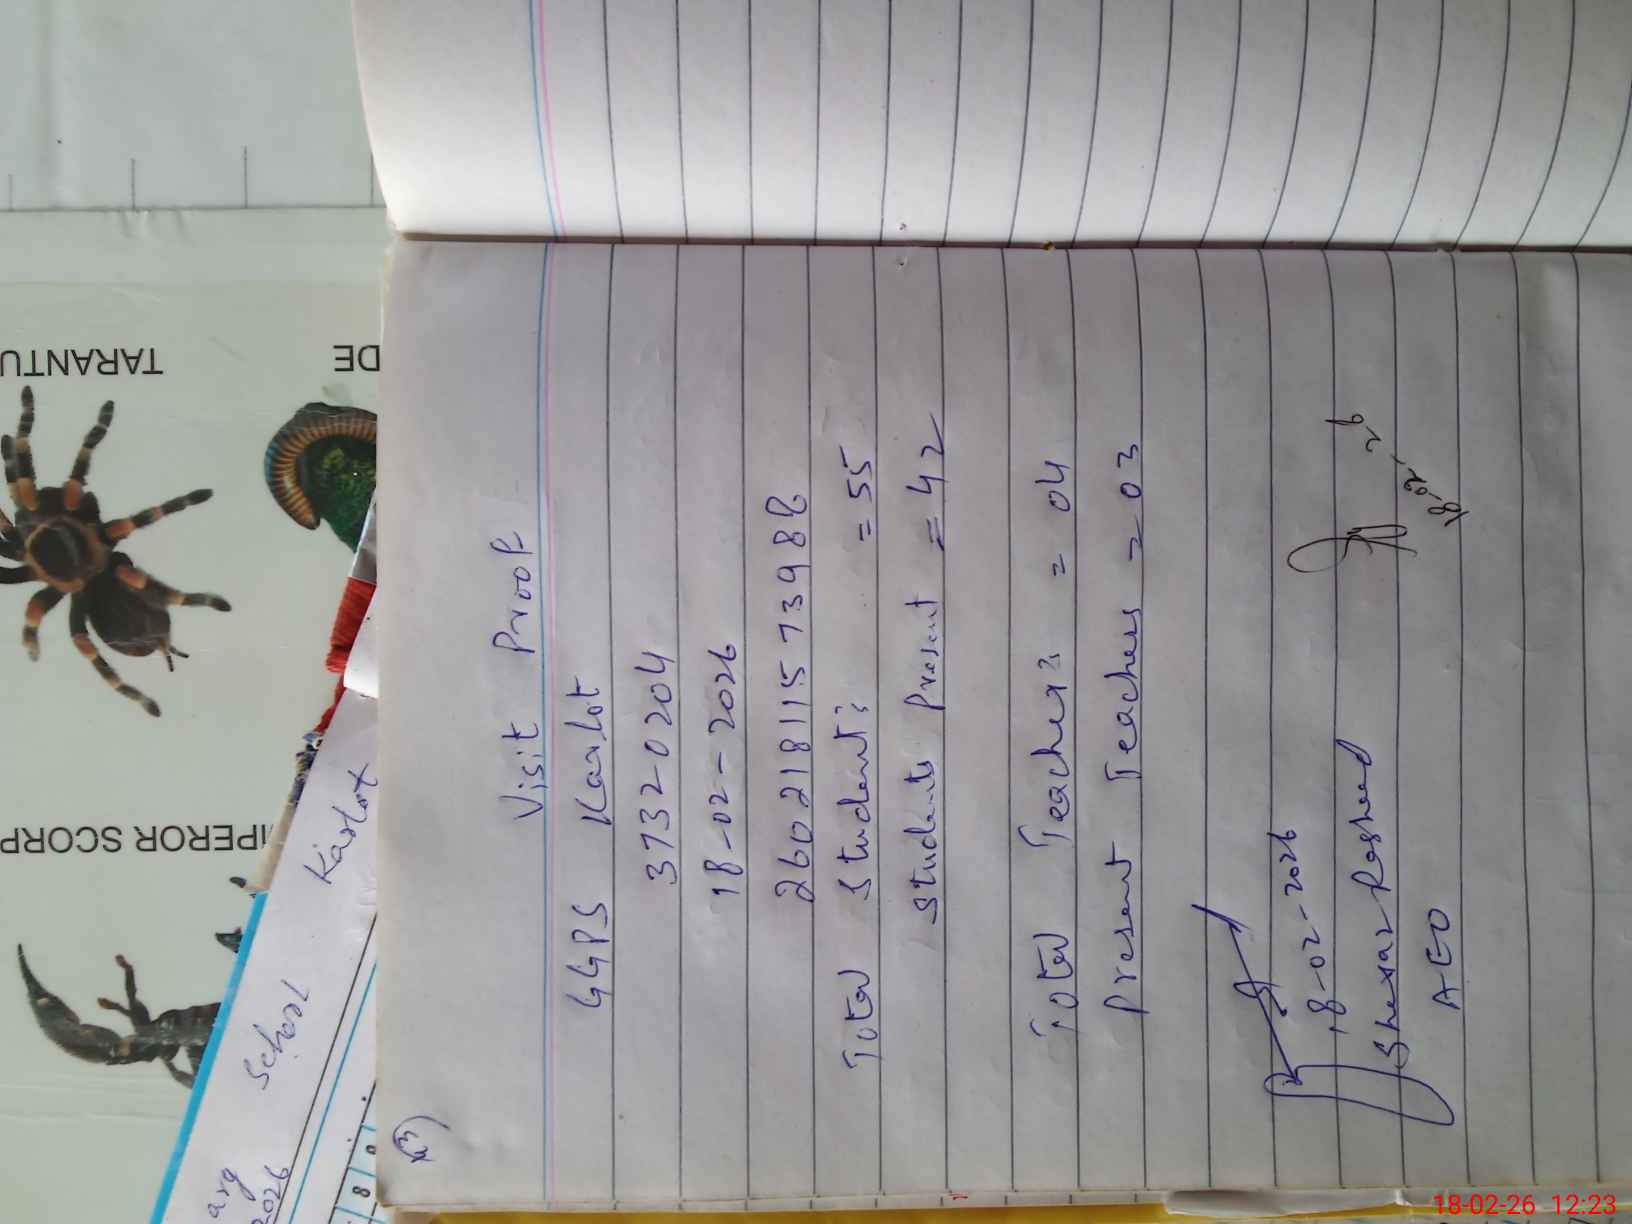 Visit Proof
GGPS Karlot
37320204
18-02-2026
260218115739 88
Total Students = 55
Students Present = 42
Total Teachers = 04
Present Teachers = 03
18-02-2026
18-02-26
AEO
School Karlot
2026
8 9
TARANTU
DE
IPEROR SCORP
18-02-26 12:23